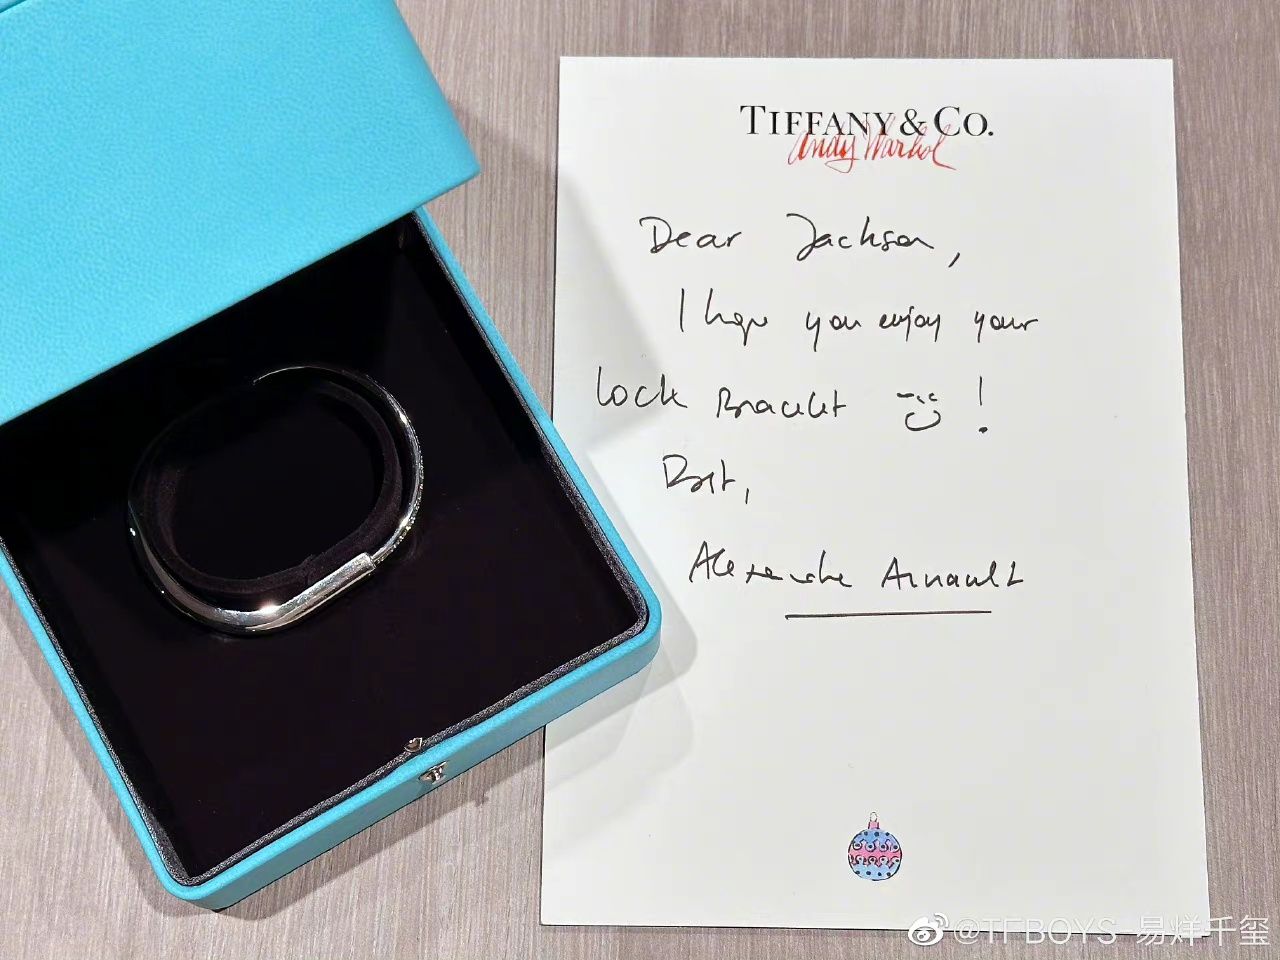 TIFFANY & CO.
Andy Warhol
Dear Jackson,
I hope you enjoy your
Lock Bracelet !
Best,
Alexandre Arnault
@TFBOYS-易烊千玺